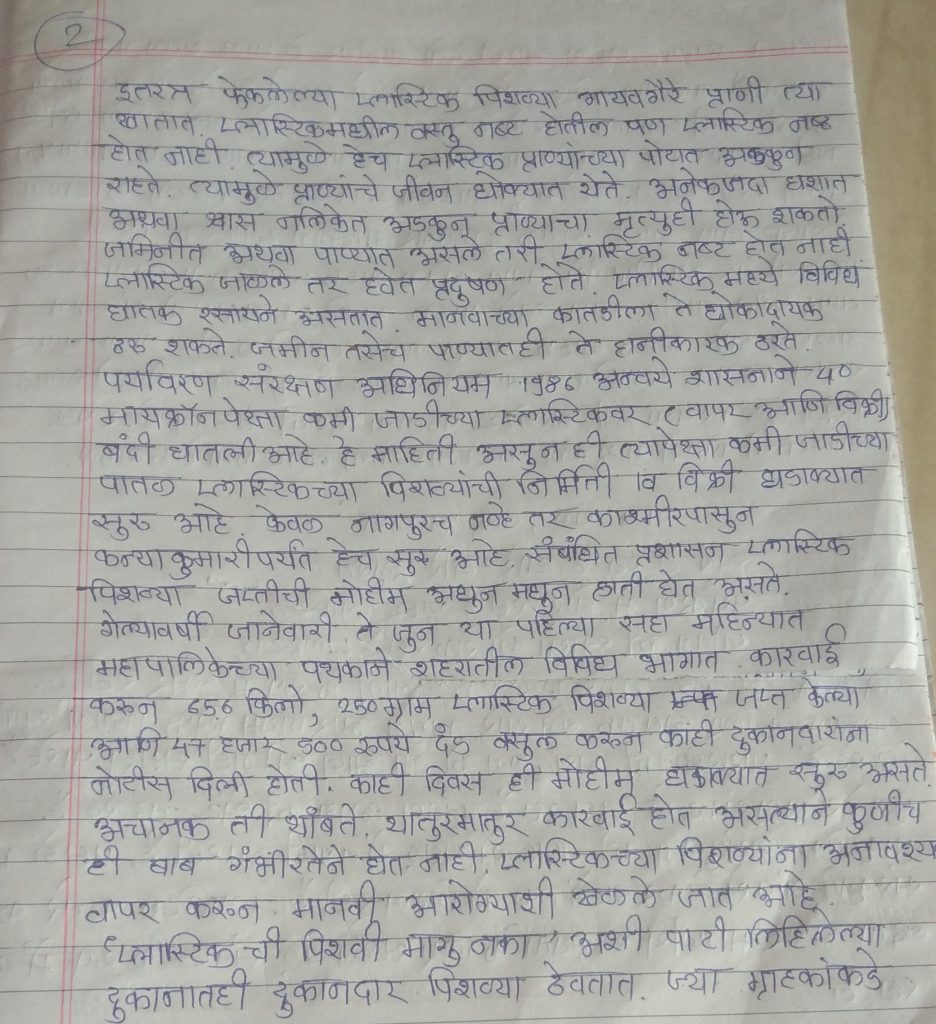 2
इतरत्र फेकलेल्या प्लास्टिक पिशव्या गायवगैरे प्राणी त्या
खातात. प्लास्टिकमधील वस्तु नष्ट होतील पण प्लास्टिक नष्ट
होत नाही. त्यामुळे हेच प्लास्टिक प्राण्यांच्या पोटात अडकुन
राहते. त्यामुळे प्राण्यांचे जीवन धोक्यात येते. अनेकजदा घशात
अथवा श्वास नलिकेत अडकुन प्राण्याचा मृत्युही होऊ शकतो.
जमिनीत अथवा पाण्यात असले तरी प्लास्टिक नष्ट होत नाही
प्लास्टिक जाळले तर हवेत प्रदुषण होते. प्लास्टिक मध्ये विविध
घातक रसायने असतात. मानवाच्या कातडीला ते धोकादायक
ठरु शकते. जमीन तसेच पाण्यातही ते हानीकारक ठरते.
पर्यावरण संरक्षण अधिनियम 1986 अन्वये शासनाने 40
मायक्रॉनपेक्षा कमी जाडीच्या प्लास्टिकवर (वापर आणि विक्री)
बंदी घातली आहे. हे माहिती असुन ही त्यापेक्षा कमी जाडीच्या
पातळ प्लास्टिकच्या पिशव्यांची निर्मिती व विक्री धडाक्यात
सुरु आहे. केवळ नागपुरच नव्हे तर काश्मीरपासुन
कन्याकुमारीपर्यंत हेच सुरु आहे. संबंधित प्रशासन प्लास्टिक
पिशव्या जप्तीची मोहीम अधुन मधुन हाती घेत असते.
गेल्यावर्षी जानेवारी ते जुन या पहिल्या सहा महिन्यात
महापालिकेच्या पथकाने शहरातील विविध भागात कारवाई
करुन 656 किलो, 250 ग्राम प्लास्टिक पिशव्या जप्त केल्या
आणि 47 हजार 500 रुपये दंड वसुल करुन कांही दुकानदारांना
नोटीस दिली होती. काही दिवस ही मोहीम धडाक्यात सुरु असते.
अचानक ती थांबते. थातुरमातुर कारवाई होत असल्याने कुणीच
ही बाब गंभीरतेने घेत नाही. प्लास्टिकच्या पिशव्यांना अनावश्य
वापर करुन मानवी आरोग्याशी खेळले जात आहे.
'प्लास्टिक ची पिशवी मागु नका' अशी पाटी लिहिलेल्या
दुकानातही दुकानदार पिशव्या ठेवतात. ज्या ग्राहकांकडे